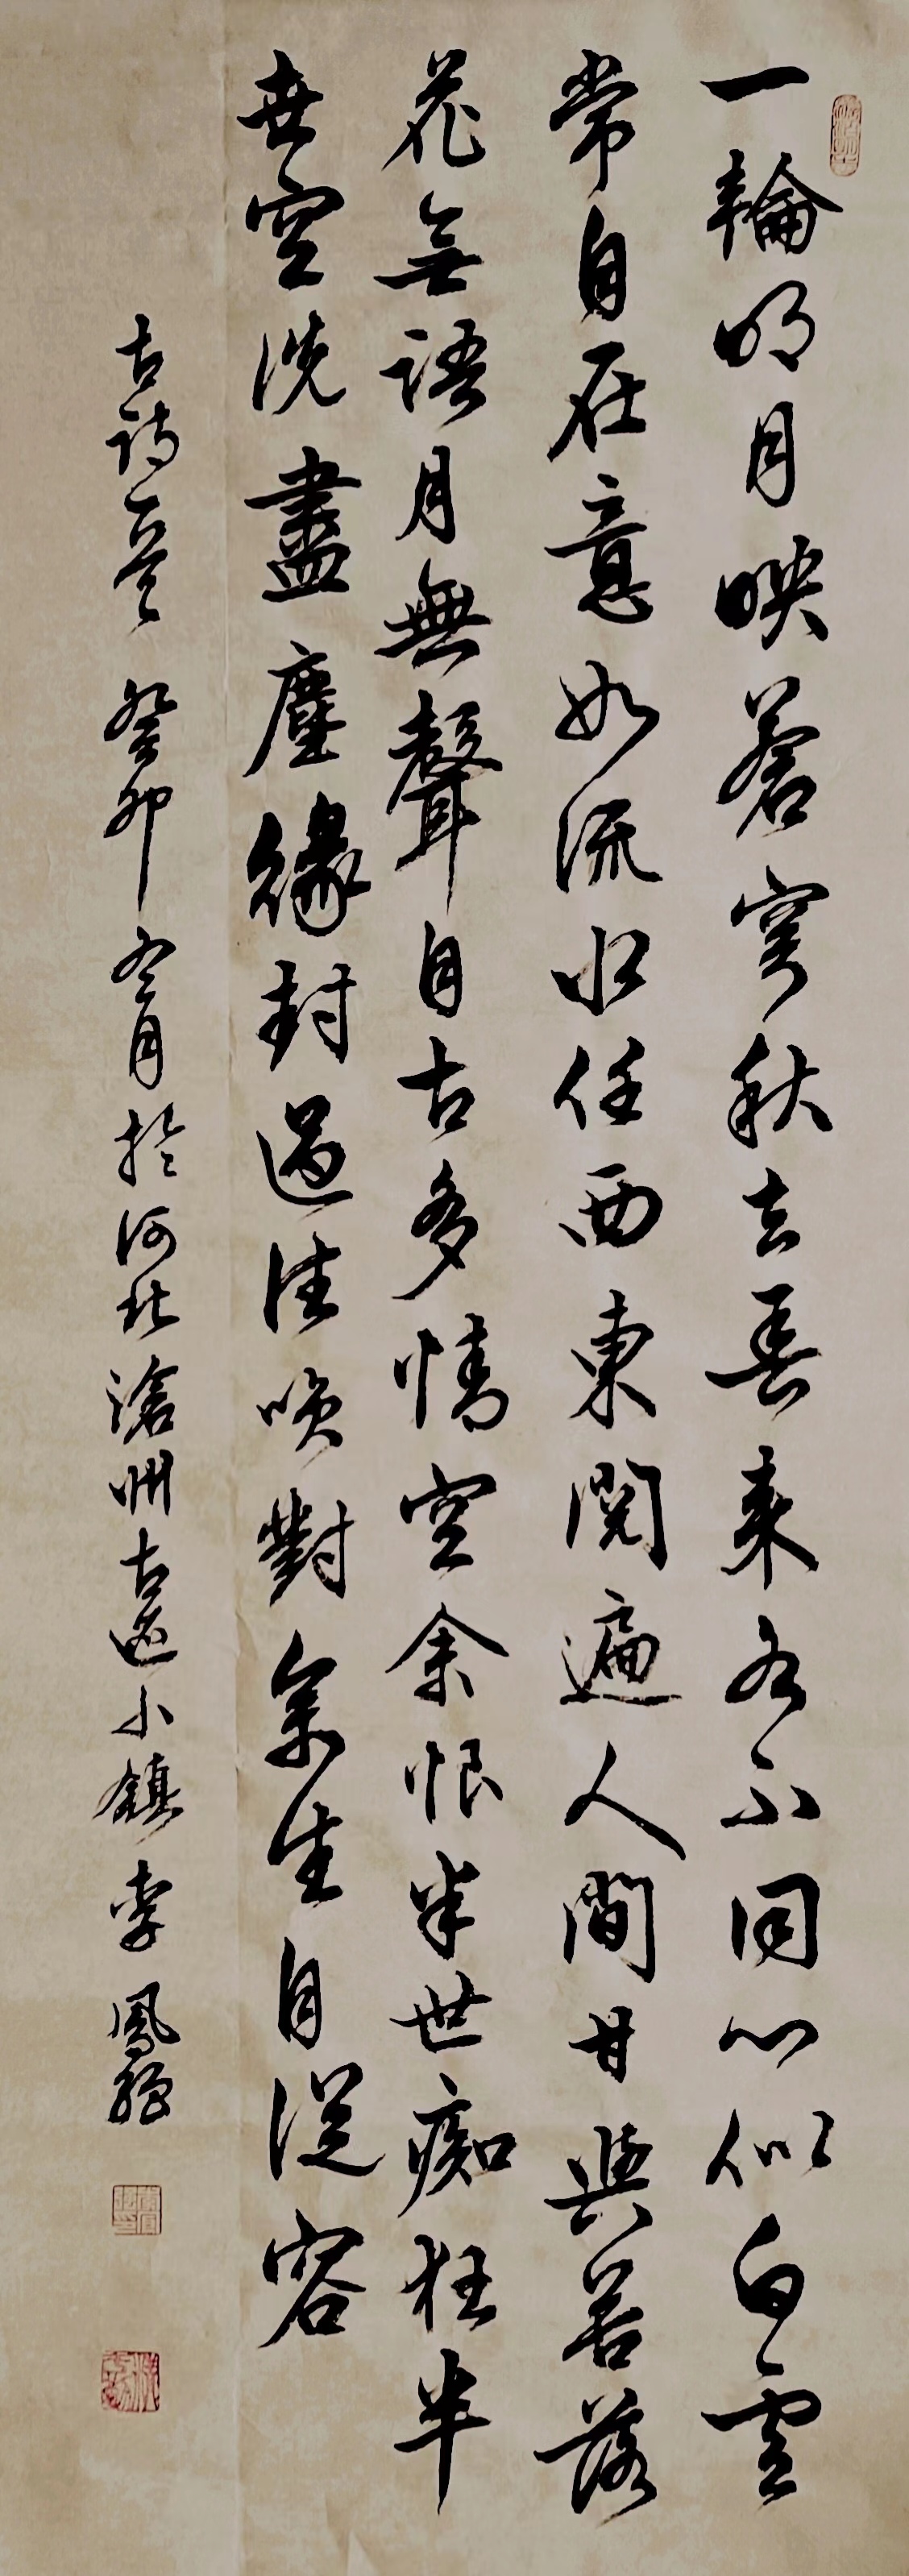 一輪明月映蒼穹秋去春来各不同心似白雲
常自在意如流水任西東閱遍人間甘與苦落
花無語月無聲自古多情空余恨半世痴狂半
世空洗盡塵緣封過往笑對余生自從容
古詩一首 癸卯冬月於河北滄州古運小鎮 李鳳强